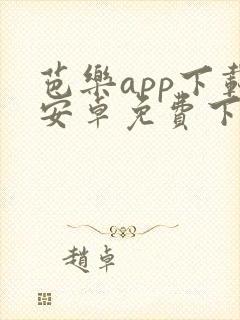 芭樂app下載
安卓免費下
趙卓